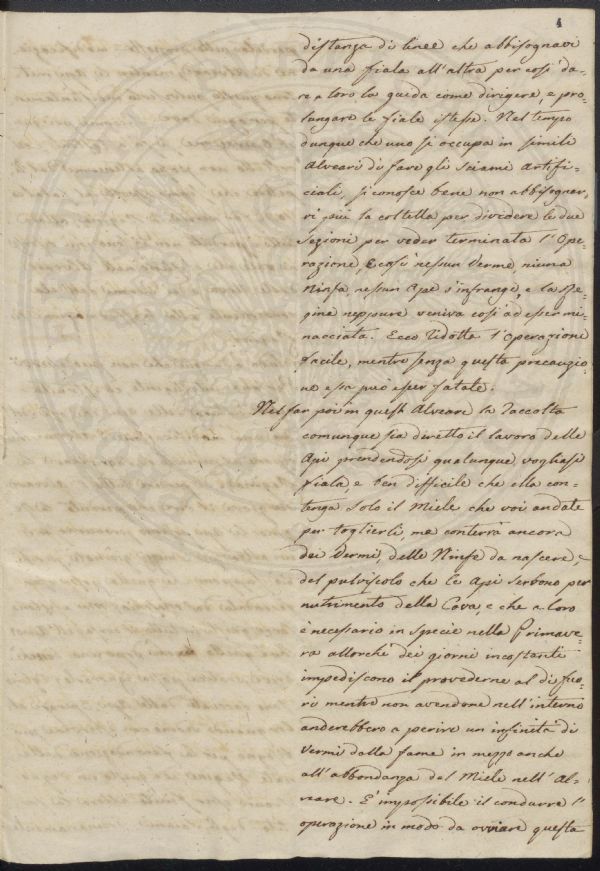 4
distanza di linee che abbisognavi
da una fiala all'altra per cosi da=
re a loro la guida come dirigere, e pro=
lungare le fiale istesse. Nel tempo
dunque che uno si occupa in simili
Alveari di fare gli Sciami Artifi=
ciali, si conosce bene non abbisognar=
vi più la coltella per dividere le due
Sezioni per veder terminata l'Ope=
razione, E così nessun Verme, niuna
Ninfa, nessun Ape s'infrange, e la Re=
gina neppure veniva così ad esser mi=
nacciata. Ecco ridotta l'Operazione
facile, mentre senza questa precauzio=
ne essa può esser fatale.
Nel far poi in questi Alveari la raccolta
comunque sia diretto il lavoro delle
Api prendendosi qualunque vogliasi
fiala e ben difficile che ella con=
tenga solo il Miele che voi andate
per toglierli, me conterrà ancora
dei Vermi, delle Ninfe da nascere, e
del pulviscolo che le Api serbono per
nutrimento della Cova, e che a loro
è necessario in specie nella Primave=
ra allorchè dei giorni incostanti
impediscono il provederne al di fuo=
ri mentre non avendone nell'interno
anderebbero a perire un infinità di
Vermi dalla fame in mezzo anche
all'abbondanza del Miele nell'Al=
veare. E' impossibile il condurre l'
operazione in modo da ovviare questa